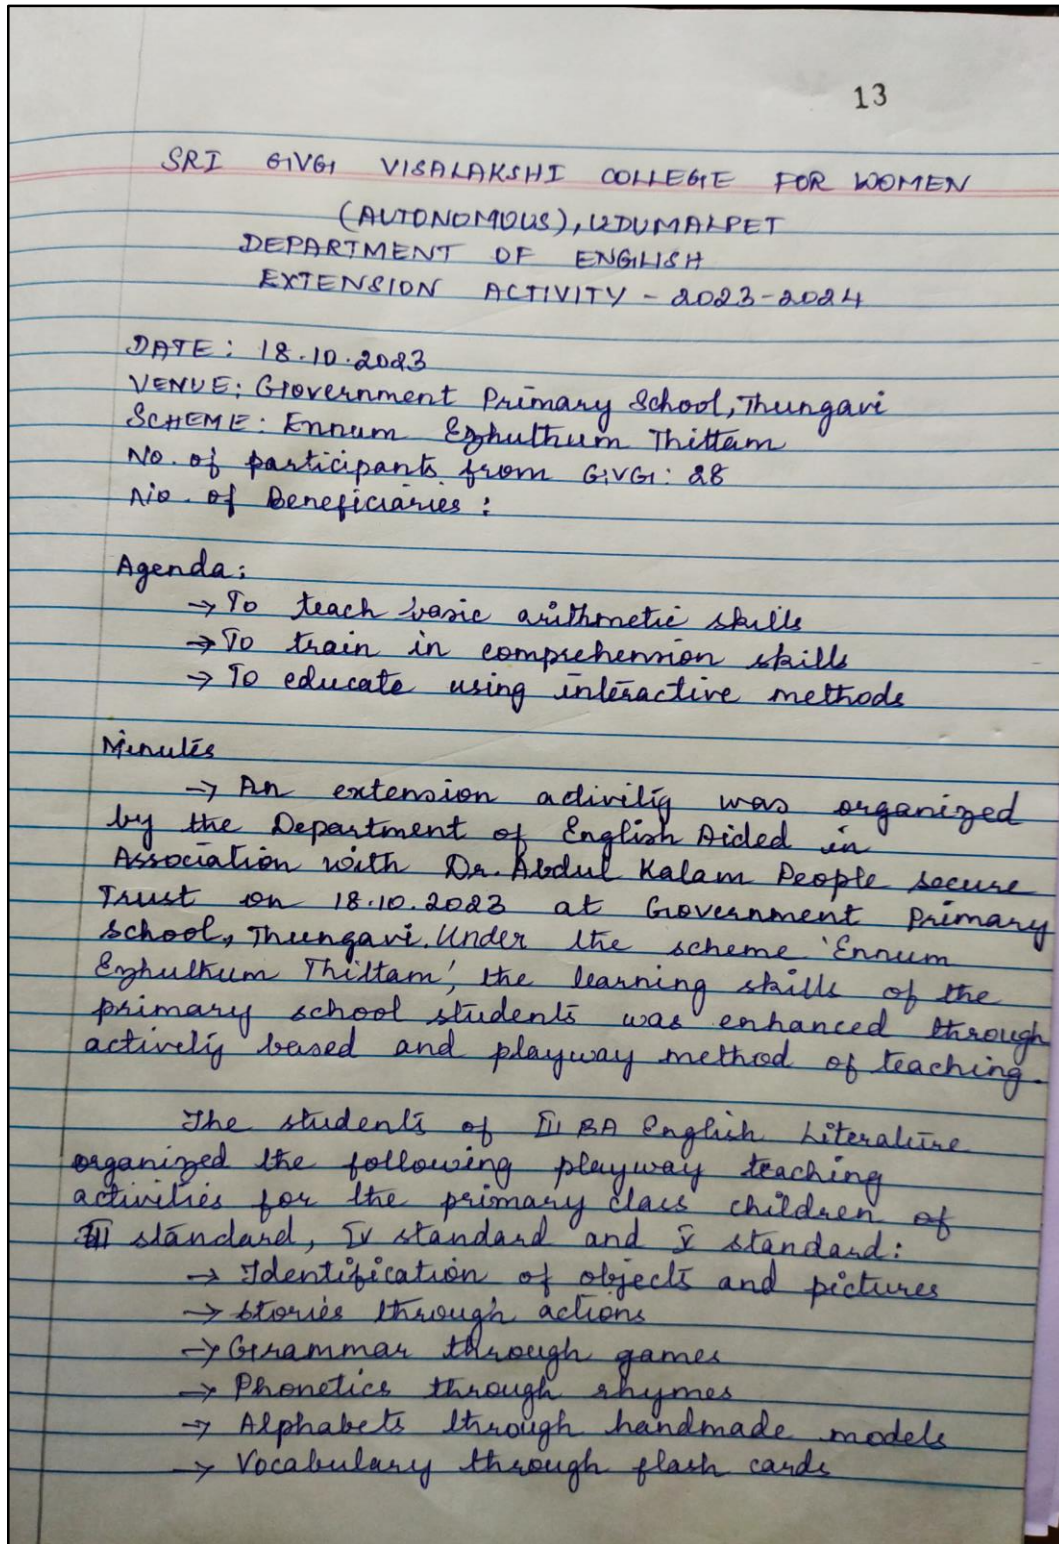 13
SRI GVG VISALAKSHI COLLEGE FOR WOMEN
(AUTONOMOUS), UDUMALPET
DEPARTMENT OF ENGLISH
EXTENSION ACTIVITY - 2023-2024
DATE: 18.10.2023
VENUE: Government Primary School, Thungavi
SCHEME: Ennum Ezhuthum Thittam
No. of participants from GVG: 28
No. of Beneficiaries :
Agenda:
→ To teach basic arithmetic skills
→ To train in comprehension skills
→ To educate using interactive methods
Minutes
→ An extension activity was organized
by the Department of English Aided in
Association with Dr. Abdul Kalam People secure
Trust on 18.10.2023 at Government Primary
School, Thungavi. Under the scheme 'Ennum
Ezhuthum Thittam', the learning skills of the
primary school students was enhanced through
activity based and playway method of teaching.
The students of III BA English Literature
organized the following playway teaching
activities for the primary class children of
III standard, IV standard and V standard:
→ Identification of objects and pictures
→ Stories through actions
→ Grammar through games
→ Phonetics through rhymes
→ Alphabets through handmade models
→ Vocabulary through flash cards